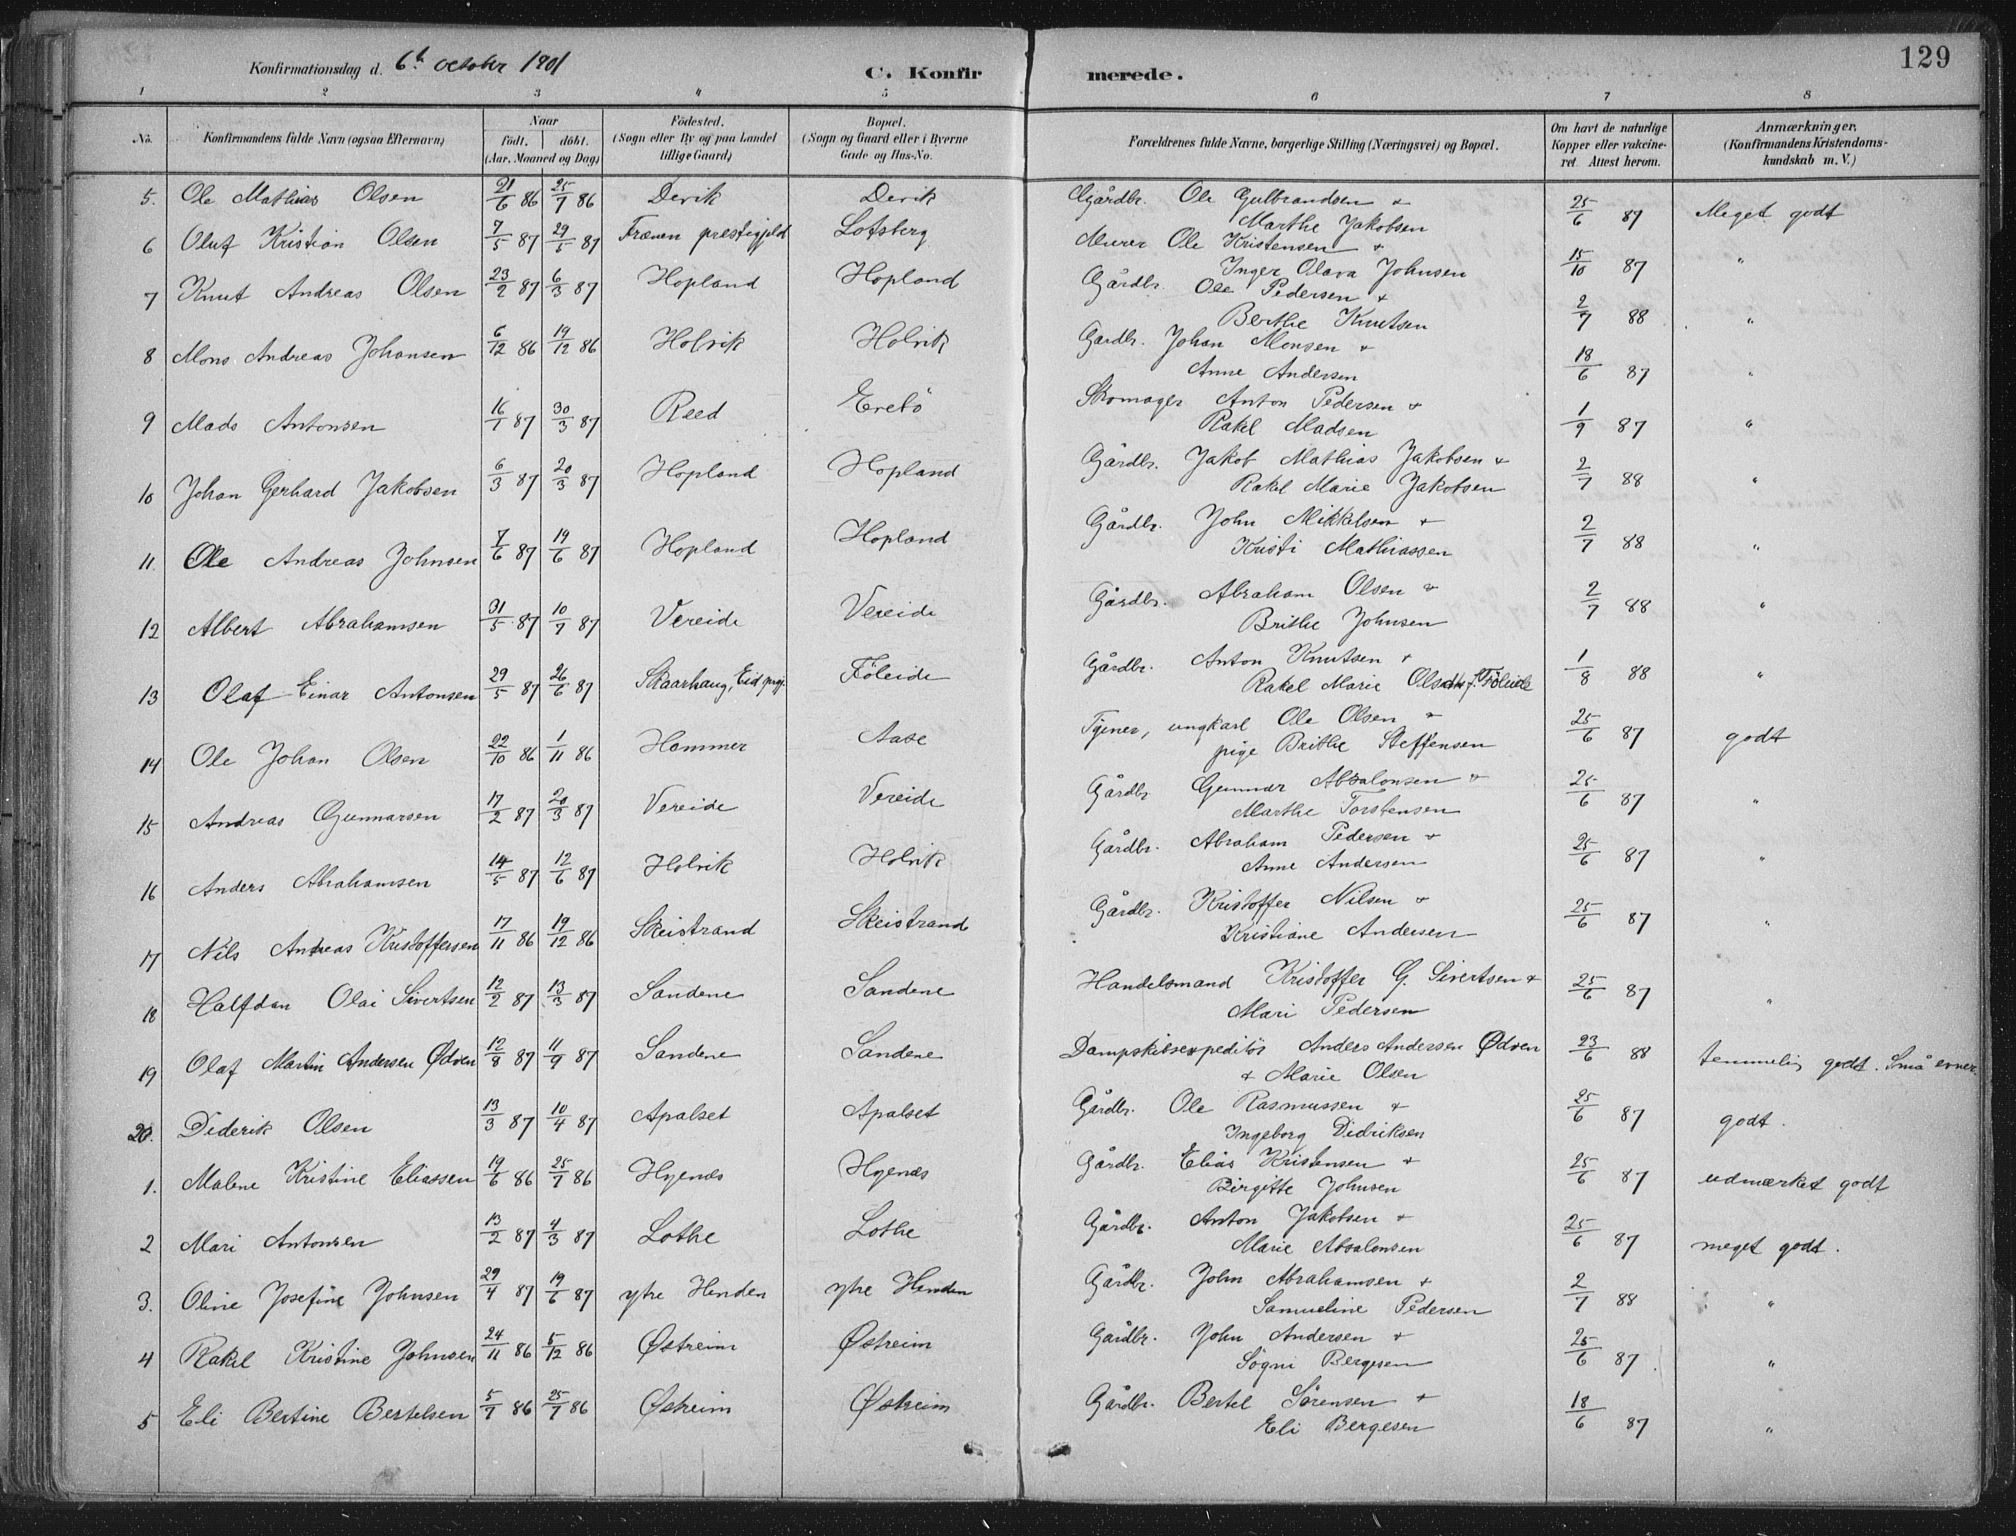 129
Konfirmationsdag d. 6th october 1901 C. Konfirmerede.
1 2 3 4 5 6 7 8
No. Konfirmandens fulde Navn (ogsaa Efternavn) Naar födt. döbt. (Aar. Maaned og Dag) Födested. (Sogn eller By og paa Landet tillige Gaard) Bopæl. (Sogn og Gaard eller i Byerne Gade og Hus-No. Forældrenes fulde Navne, borgerlige Stilling (Næringsvei) og Bopæl. Om havt de naturlige Kopper eller vakcineret. Attest herom. Anmærkninger. (Konfirmandens Kristendomskundskab m. V.)
5. Ole Mathias Olsen 21/6 86 25/7 86 Devik Devik Gårdbr. Ole Gulbrandsen + Marthe Jakobsen 25/6 87 Meget godt
6 Oluf Kristian Olsen 7/5 87 29/5 87 Frænen prestegjeld Lotsberg Murer Ole Kristensen + Inger Olava Johnsen 15/10 87 "
7 Knut Andreas Olsen 23/2 87 6/3 87 Hopland Hopland Gårdbr. Ole Pedersen + Berthe Knutsen 2/7 88 "
8 Mons Andreas Johansen 6/12 86 19/12 86 Holvik Holvik Gardbr. Johan Monsen + Anne Andersen 18/6 87 "
9 Mads Antonsen 16/1 87 30/3 87 Reed Evebö Skomager Anton Pedersen + Rakel Madsen 1/9 87 "
10 Johan Gerhard Jakobsen 6/3 87 20/3 87 Hopland Hopland Gårdbr. Jakob Mathias Jakobsen + Rakel Marie Jakobsen 2/7 88 "
11. Ole Andreas Johnsen 7/6 87 19/6 87 Hopland Hopland Gårdbr. John Mikkelsen + Kristi Mathiassen 2/7 88 "
12 Albert Abrahamsen 31/5 87 10/7 87 Vereide Vereide Gårdbr. Abraham Olsen + Brithe Johnsen 2/7 88 "
13 Olaf Einar Antonsen 29/5 87 26/6 87 Skaarhaug, Eid prgj. Föleide Gårdbr. Anton Knutsen + Rakel Marie Olsdtr f. Föleide 1/8 88 "
14 Ole Johan Olsen 22/10 86 1/11 86 Hammer Aase Tjener, ungkarl Ole Olsen + pige Brithe Steffensen 25/6 87 godt
15 Andreas Gunnarsen 17/2 87 20/3 87 Vereide Vereide Gårdbr Gunnar Absalonsen + Marthe Torstensen 25/6 87 "
16 Anders Abrahamsen 14/5 87 12/6 87 Holvik Holvik Gårdbr. Abraham Pedersen + Anne Andersen 25/6 87 "
17 Nils Andreas Kristoffersen 17/11 86 19/12 86 Skeistrand Skeistrand Gårdbr. Kristoffer Nilsen + Kristiane Andersen 25/6 87 "
18 Halfdan Olai Sivertsen 12/2 87 13/3 87 Sandene Sandene Handelsmand Kristoffer G. Sivertsen + Mari Pedersen 25/6 87 "
19 Olaf Martin Andersen Ødven 12/8 87 11/9 87 Sandene Sandene Dampskibsexpeditör Anders Andersen Ødven + Marie Olsen 23/6 88 temmelig godt. Små evner.
20. Diderik Olsen 13/3 87 10/4 87 Apalset Apalset Gårdbr. Ole Rasmussen + Ingeborg Didriksen 25/6 87 godt.
1. Malene Kristine Eliassen 19/6 86 25/7 86 Hyenæs Hyenæs Gårdbr. Elias Kristensen + Birgitte Johnsen 25/6 87 udmærket godt
2 Mari Antonsen 13/2 87 4/3 87 Lothe Lothe Gårdbr. Anton Jakobsen + Marie Absalonsen 25/6 87 meget godt.
3. Oline Josefine Johnsen 29/4 87 19/6 87 ytre Henden ytre Henden Gårdbr. John Abrahamsen + Samueline Pedersen 2/7 88 "
4 Rakel Kristine Johnsen 24/11 86 5/12 86 Østreim Østreim Gårdbr. John Andersen + Sögni Bergesen 25/6 87. "
5 Eli Bertine Bertelsen 5/7 86 25/7 86 Østreim Østreim Gårdbr. Bertel Sörensen + Eli Bergesen 18/6 87 "